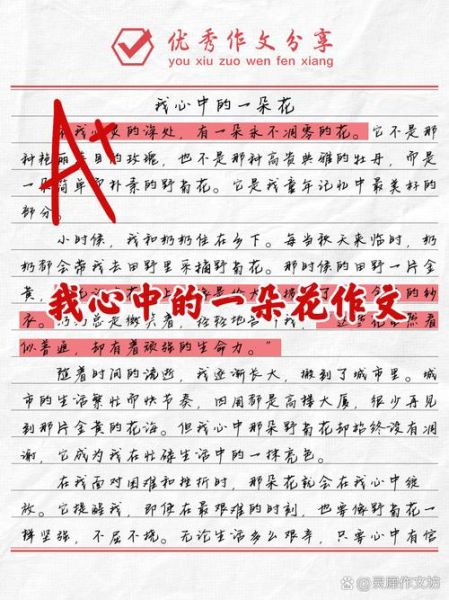 优秀作文分享
you xiu zuo wen fen xiang
我心中的一朵花
的深处，有一朵永不凋零的花。它不是那
种艳丽 目的玫瑰，也不是那种高贵典雅的牡丹，而是
一 简单而朴素的野菊花。它是我童年记忆中最美好的
部分。
A+
小时候，我和奶奶住在乡下。每当秋天来临时，奶
奶都会带我去田野里采摘野菊花。那时候的田野一片金
黄，
我心中的一朵花作文
衣。奶奶总是微笑着，轻轻地告 我， 看
似普通，却有着顽强的生命力。”
随着时间的流逝，我逐渐长大，搬到了城市里。城
市的生活繁忙而快节奏，四周都是高楼大厦，很少再见
到那片金黄的花海。但我心中那朵野菊花却始终没有凋
谢，它成为我在忙碌生活中的一抹亮色。
在我面对困难和挫折时，那朵花就会在我心中绽
放。它提醒我，即使在最艰难的时刻，也要像野菊花一
样坚强，不屈不挠。无论生活多么艰辛，只要心中有信
百家号@晨雁作文坊